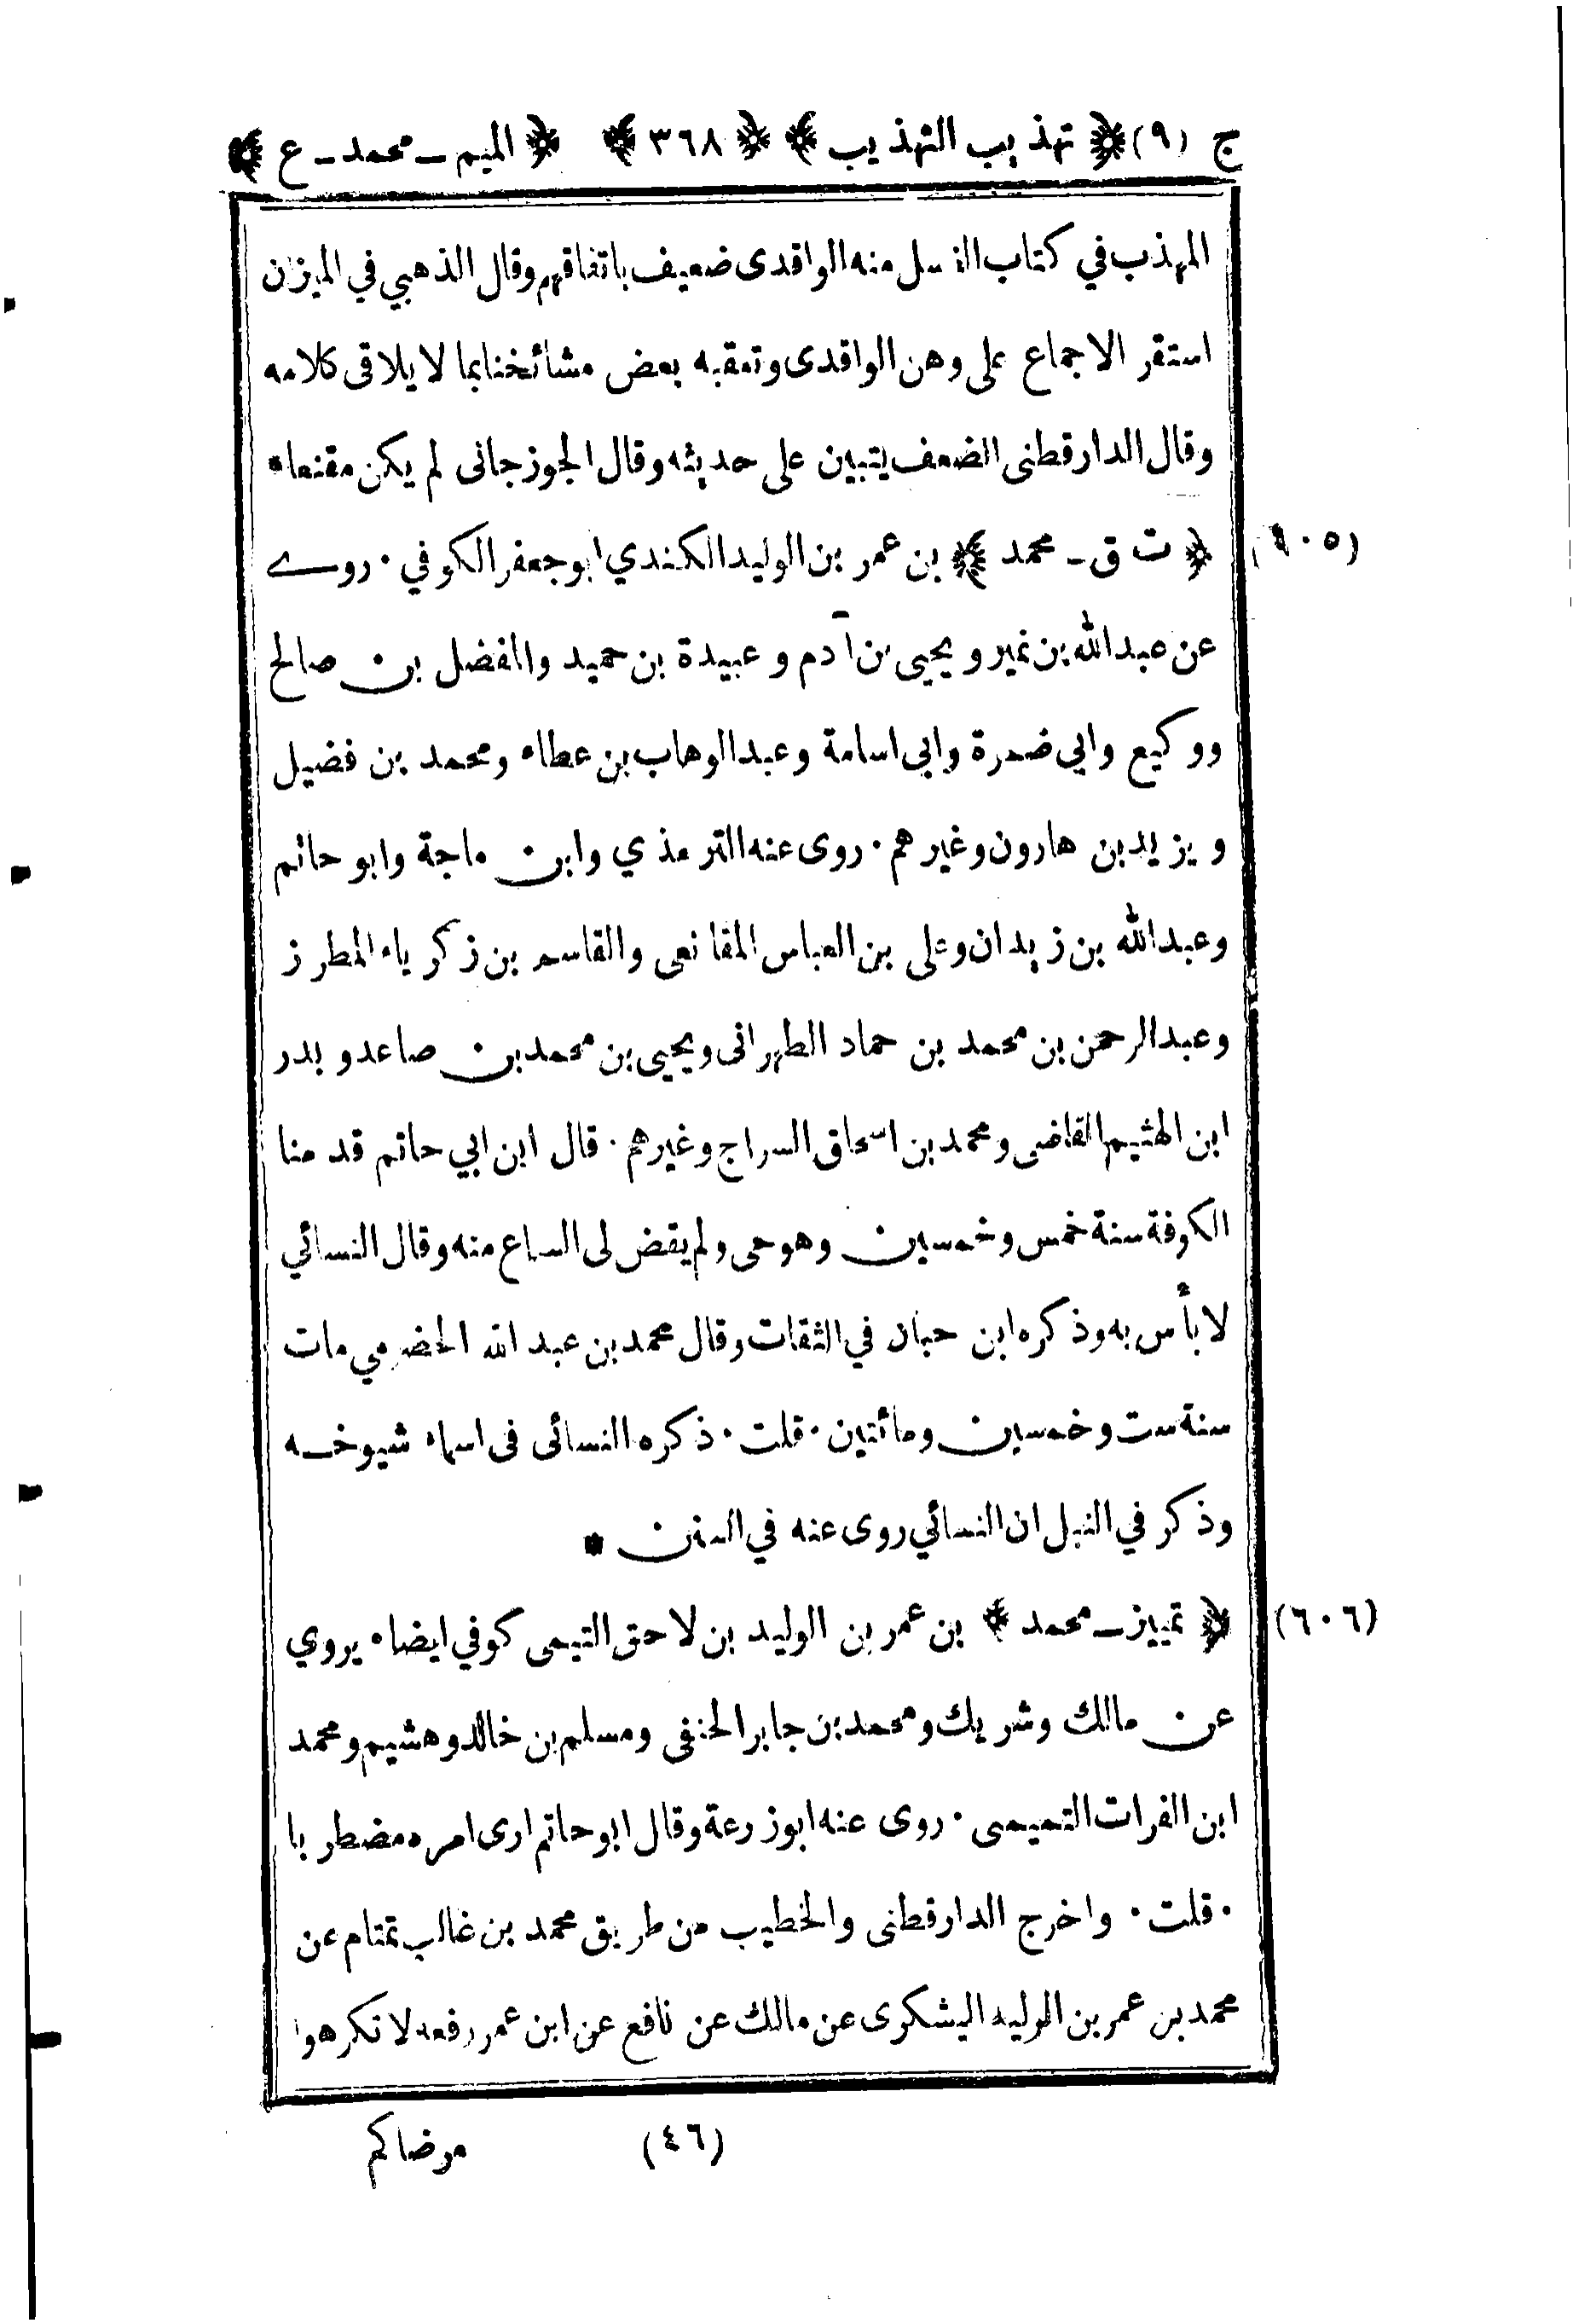 ج (٩) ﴿ تهذيب التهذيب ﴾ ﴿ ٣٦٨ ﴾ ﴿ الميم ـ محمد ـ ع ﴾
المهذب في كتاب الغسل منه الواقدى ضعيف باتفاقهم وقال الذهبي في الميزان
استقر الاجماع على وهن الواقدى وتعقبه بعض مشائخنا بما لا يلاقى كلامه
وقال الدارقطنى الضعف يتبين على حديثه وقال الجوزجانى لم يكن مقنعا *
(٦٠٥) ﴿ ت ق ـ محمد ﴾ بن عمر بن الوليد الكندي ابو جعفر الكوفي ٠ روے
عن عبد الله بن نمير و يحيى بن آدم و عبيدة بن حميد والمفضل بن صالح
ووكيع وابي ضمرة وابى اسامة وعبد الوهاب بن عطاء ومحمد بن فضيل
ويزيد بن هارون وغيرهم ٠ روى عنه الترمذي وابن ماجة وابو حاتم
وعبد الله بن زيدان وعلى بن العباس المقانعى والقاسم بن زكرياء المطرز
وعبد الرحمن بن محمد بن حماد الطهرانى ويحيى بن محمد بن صاعد و بدر
ابن الهثيم القاضى ومحمد بن اسحاق السراج وغيرهم ٠ قال ابن ابي حاتم قدمنا
الكوفة سنة خمس وخمسين وهو حى ولم يقض لى السماع منه وقال النسائي
لا بأس به وذكره ابن حبان في الثقات وقال محمد بن عبد الله الحضرمي مات
سنة ست وخمسين ومائتين ٠ قلت ٠ ذكره النسائى فى اسماء شيوخه
وذكر في النبل ان النسائي روى عنه في السنن *
(٦٠٦) ﴿ تمييز ـ محمد ﴾ بن عمر بن الوليد بن لاحق التيمى كوفي ايضا ٠ يروي
عن مالك وشريك ومحمد بن جابر الحنفى ومسلم بن خالد وهشيم ومحمد
ابن الفرات التميمى ٠ روى عنه ابو زرعة وقال ابو حاتم ارى امره مضطربا
٠ قلت ٠ واخرج الدارقطنى والخطيب من طريق محمد بن غالب تمتام عن
محمد بن عمر بن الوليد اليشكرى عن مالك عن نافع عن ابن عمر رفعه لا تكرهوا
(٤٦) مرضاكم